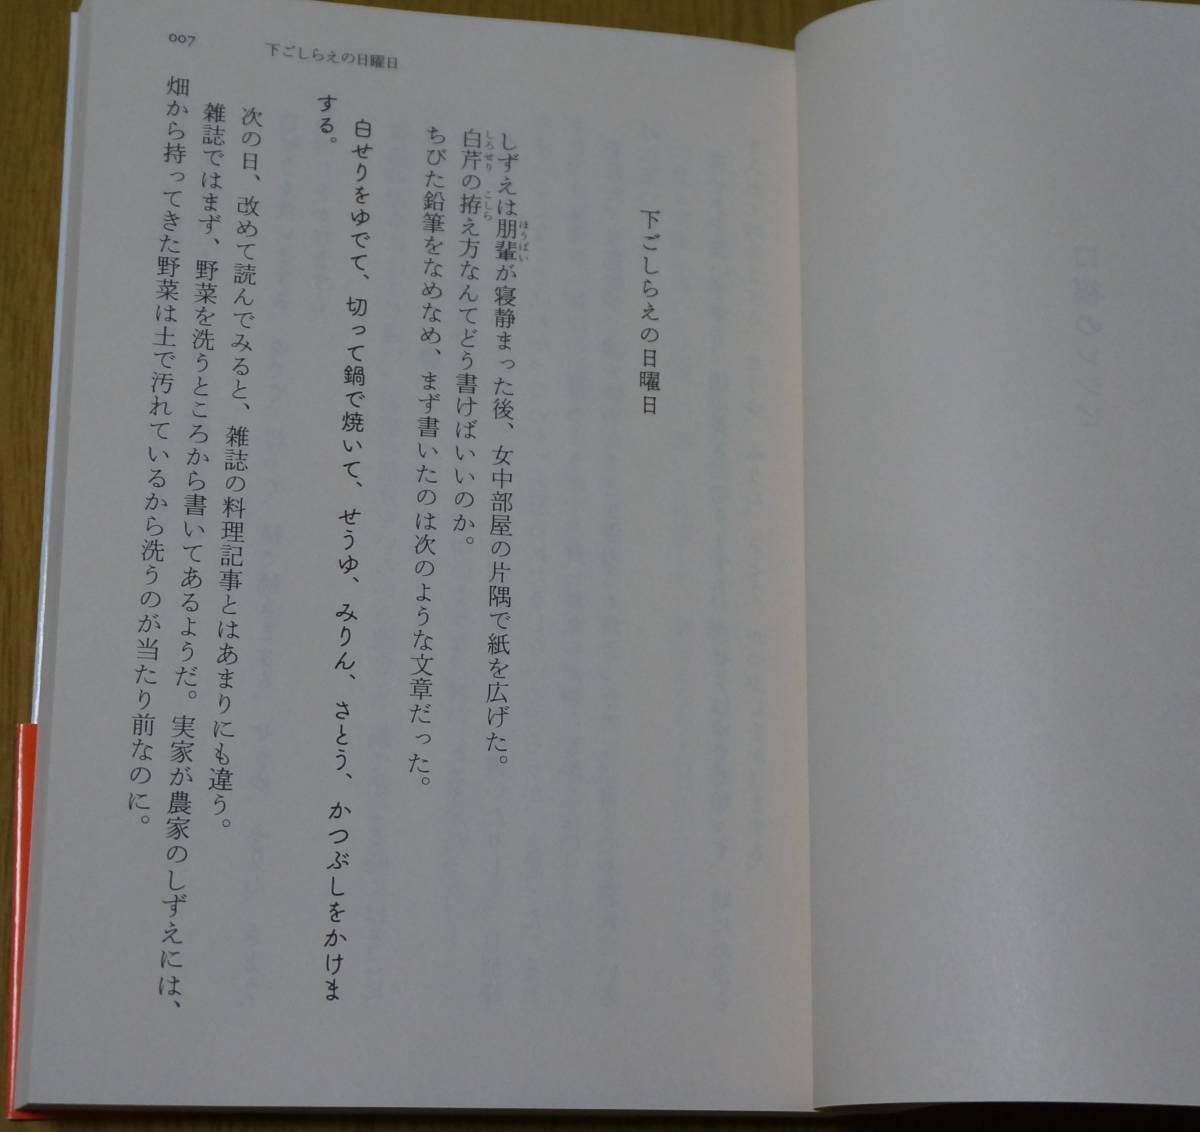 007
下ごしらえの日曜日
下ごしらえの日曜日
しずえは朋輩が寝静まった後、女中部屋の片隅で紙を広げた。
白芹の拵え方なんてどう書けばいいのか。
ちびた鉛筆をなめなめ、まず書いたのは次のような文章だった。
白せりをゆでて、切って鍋で焼いて、せうゆ、みりん、さとう、かつぶしをかけま
する。
次の日、改めて読んでみると、雑誌の料理記事とはあまりにも違う。
雑誌ではまず、野菜を洗うところから書いてあるようだ。実家が農家のしずえには、
畑から持ってきた野菜は土で汚れているから洗うのが当たり前なのに。